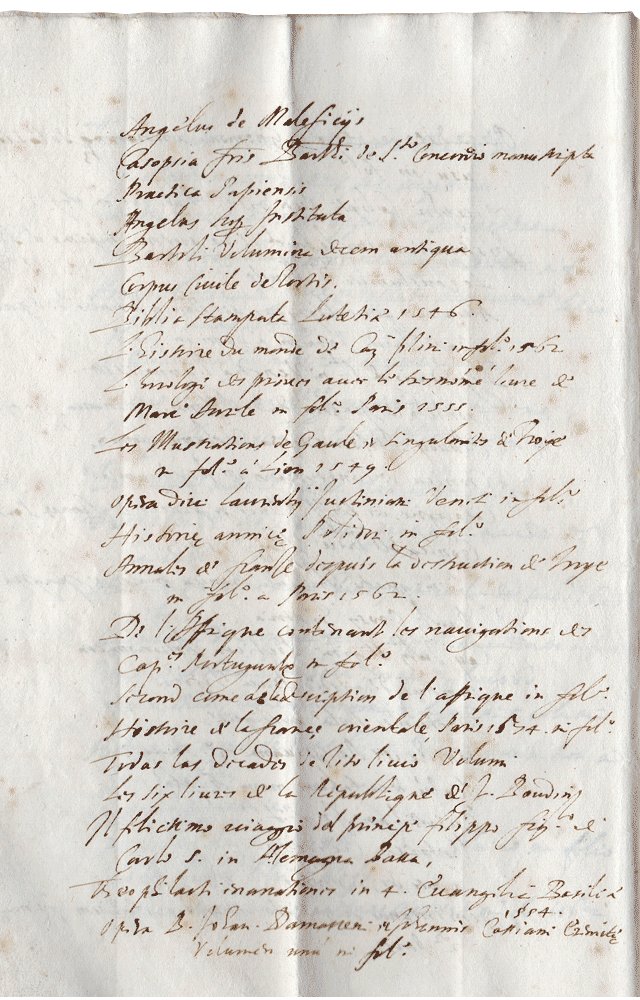 Angelus de Maleficijs
fris Barthi de S.to Concordio manuscripta
Practica Papiensis
Angelus sup Instituta
Bartoli Volumina decem antiqua
Corpus Civile de Tortis.
Biblia stampata Lutetiæ 1546.
L'histoire du monde de Caij plini in fol.o 1562
L'horologe des princes avec le tresnomé livre de
Marc Aurele in fol.o Paris 1555.
Les Illustrations de Gaule et singularités de Troye
in fol.o a Lion 1549.
opera divi Laurentij Justiniani Venet. in fol.o
Historię in fol.o
Annales de franse despuis la destruction de Troye
in fol.o a Paris 1562.
De l'Affrique contenant les navigations des
Cap.nes Portugueses in fol.o
Second tome de la description de l'affrique in fol.o
Histoire de la france orientale, Paris 1574. in fol.o
Todas las decadas de Tito livio Volum.
Les six livres de la Republique de J. Boudin
Il felicissimo viaggio del principe filippo fig.lo di
Carlo 5. in Alemagna bassa,
Theophilacti enarrationes in 4. Evangelia Basileæ
1554.
opera B. Johan. Damasceni et Joannis Cassiani Eremitę
Volumen unũ in fol.o